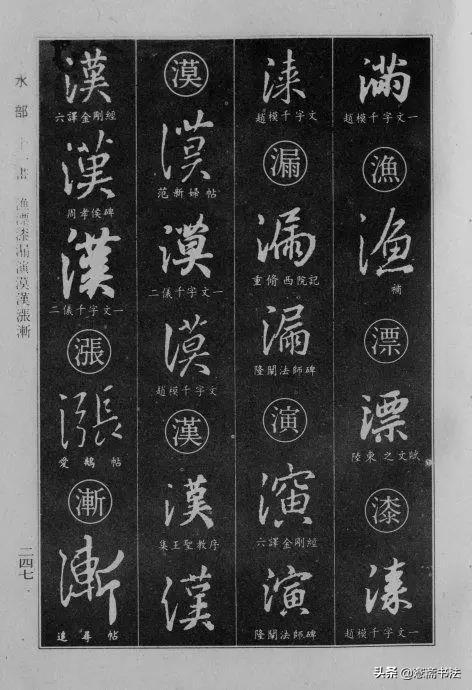 滿
趙模千字文一
漁
漁
補
漂
漂
陸柬之文賦
漆
漆
趙模千字文一
漆
趙模千字文
漏
漏
重脩西院記
漏
隆闡法師碑
演
演
六譯金剛經
演
隆闡法師碑
漠
漠
范新婦帖
漠
二儀千字文一
漠
趙模千字文
漢
漢
集王聖教序
漢
漢
六譯金剛經
漢
周孝侯碑
漢
二儀千字文一
漲
漲
愛鵝帖
漸
漸
追尋帖
水部 十一畫 漁漂漆漏演漠漢漲漸
二四七
头条@澹斋书法